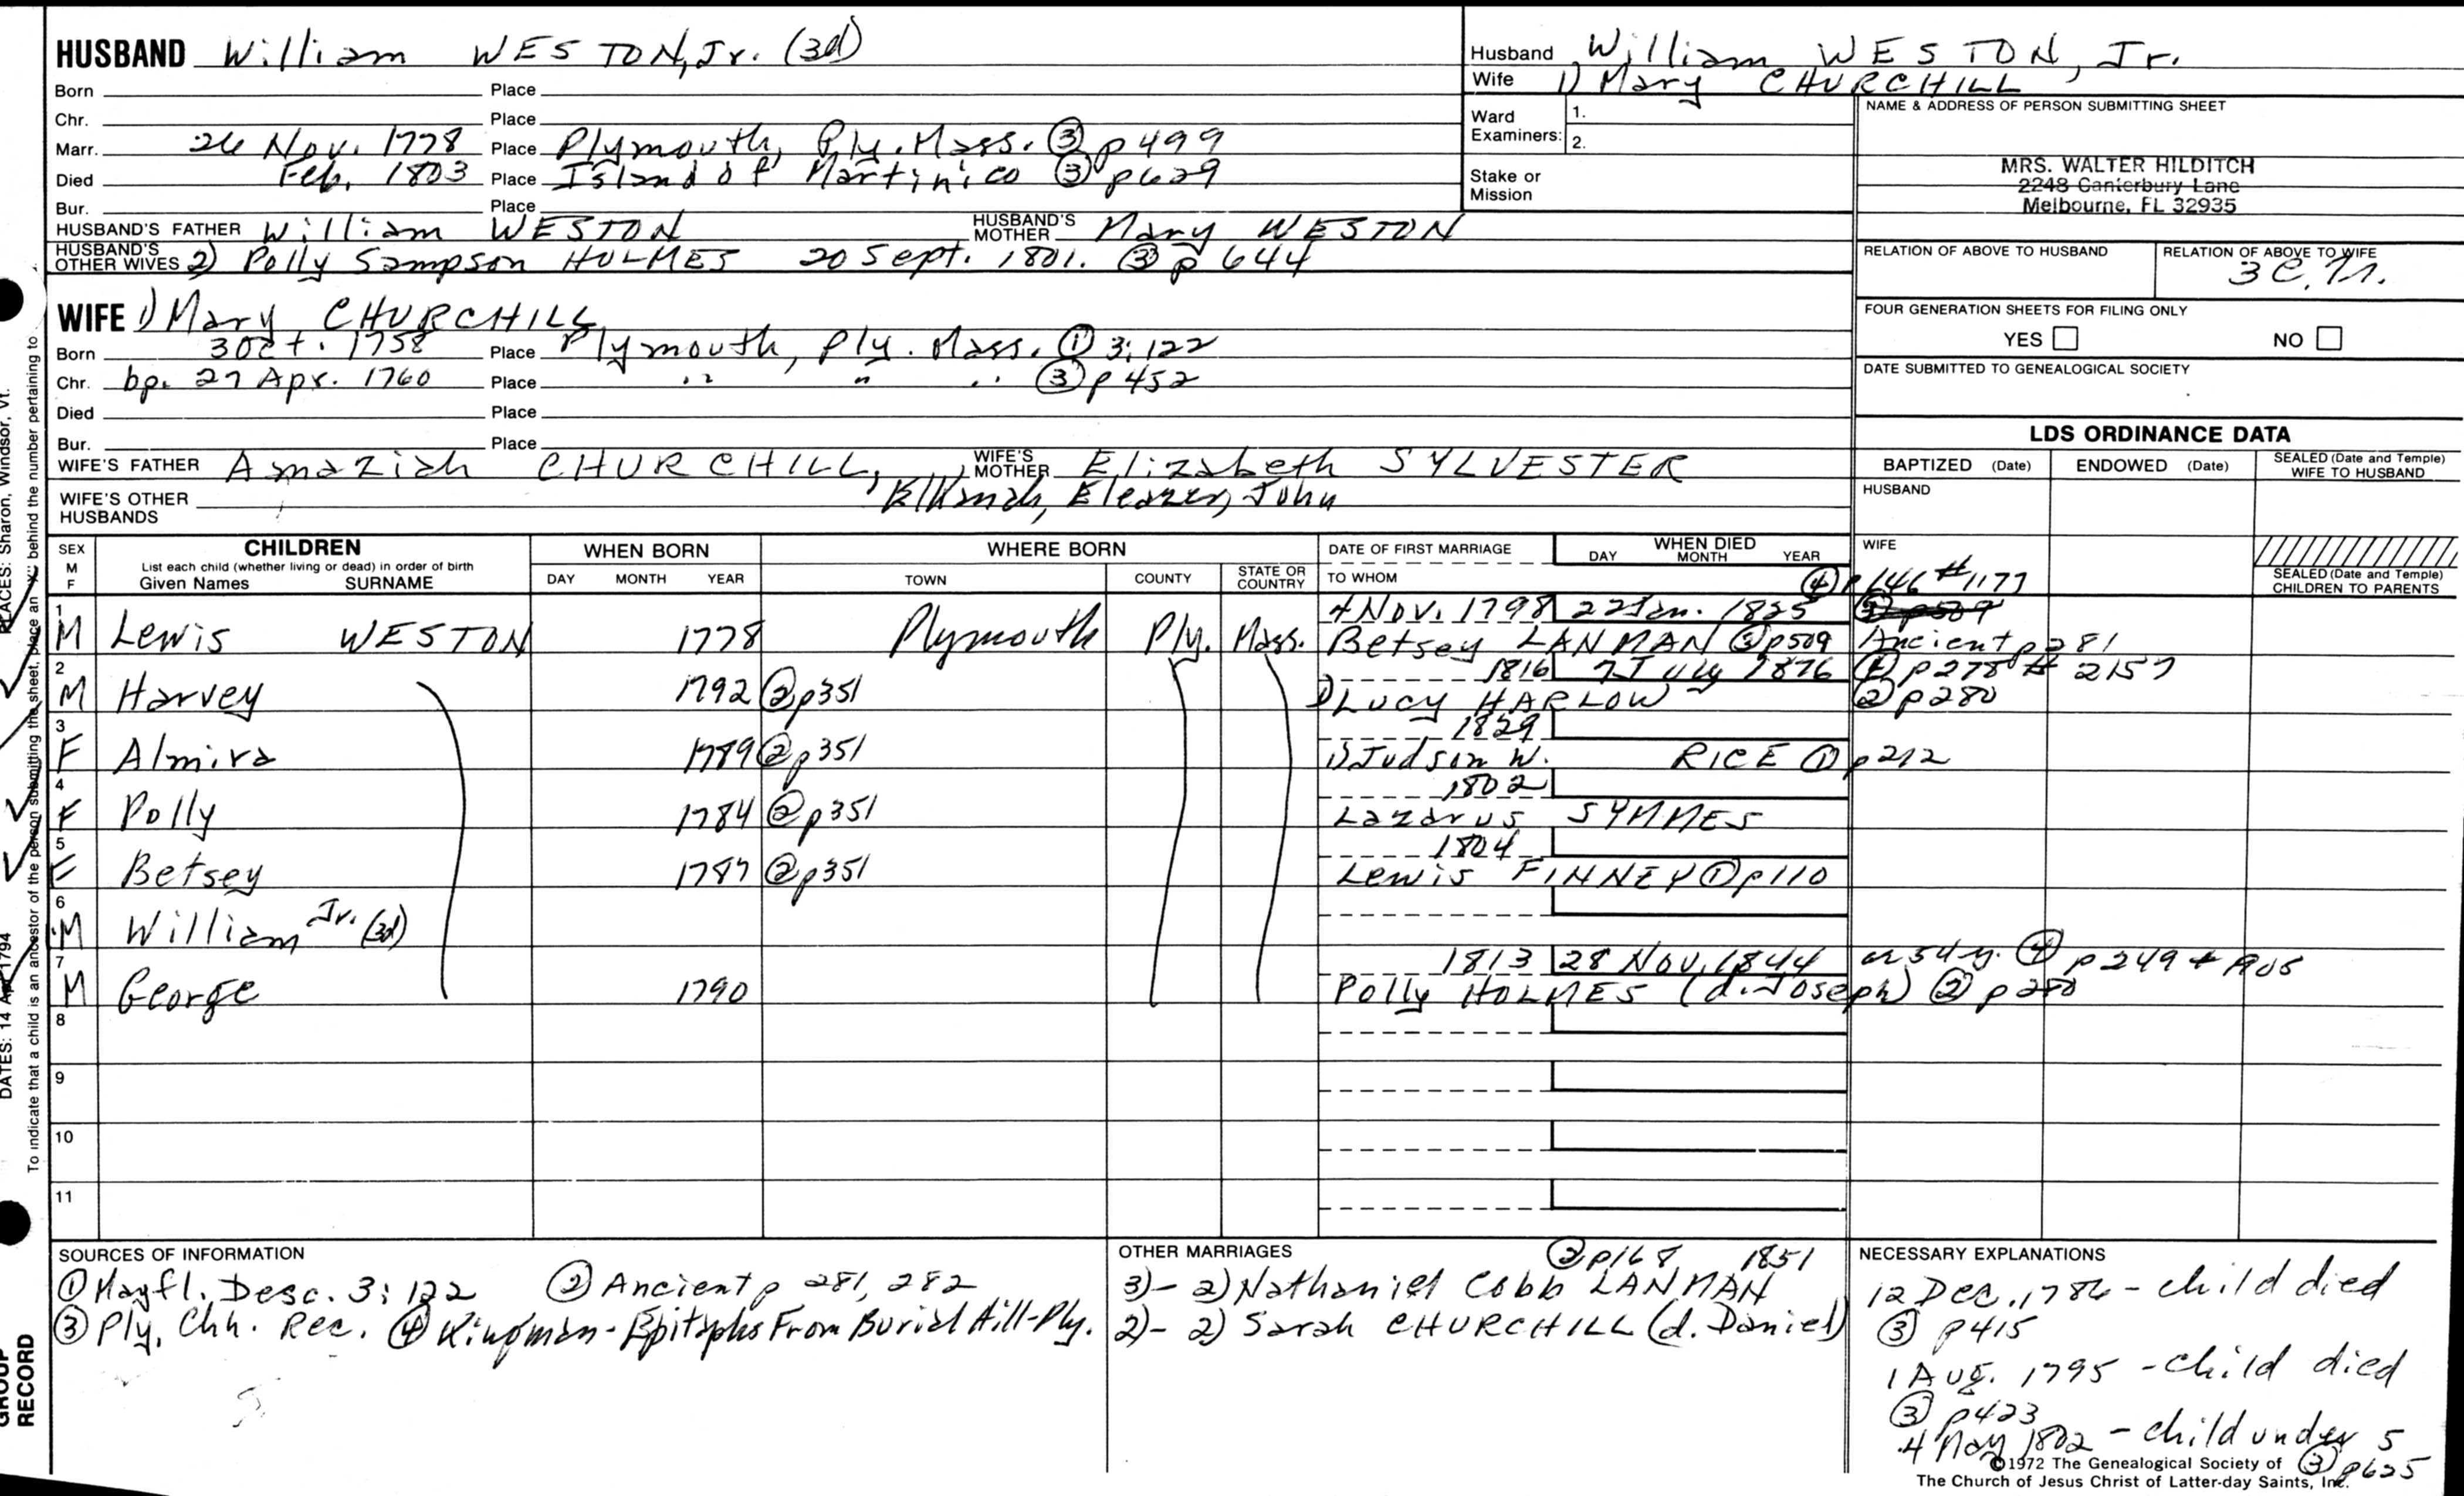 HUSBAND William WESTON, Jr. (3d)
Born Place
Chr. Place
Marr. 26 Nov. 1778 Place Plymouth, Ply. Mass. ③ p499
Died Feb. 1803 Place Island of Martinico ③ p629
Bur. Place
HUSBAND'S FATHER William WESTON HUSBAND'S MOTHER Mary WESTON
HUSBAND'S OTHER WIVES 2) Polly Sampson HOLMES 20 Sept. 1801. ③ p 644
WIFE 1) Mary CHURCHILL
Born 3 Oct. 1758 Place Plymouth, Ply. Mass. ① 3:122
Chr. bp. 27 Apr. 1760 Place " " " ③ p452
Died Place
Bur. Place
WIFE'S FATHER Amaziah CHURCHILL, WIFE'S MOTHER Elizabeth SYLVESTER
WIFE'S OTHER HUSBANDS Elkanah, Eleazer, John
Husband William WESTON, Jr.
Wife 1) Mary CHURCHILL
Ward Examiners: 1.
2.
Stake or Mission
NAME & ADDRESS OF PERSON SUBMITTING SHEET
MRS. WALTER HILDITCH
2248 Canterbury Lane
Melbourne, FL 32935
RELATION OF ABOVE TO HUSBAND RELATION OF ABOVE TO WIFE
3C.
FOUR GENERATION SHEETS FOR FILING ONLY
YES NO
DATE SUBMITTED TO GENEALOGICAL SOCIETY
LDS ORDINANCE DATA
BAPTIZED (Date) ENDOWED (Date) SEALED (Date and Temple) WIFE TO HUSBAND
HUSBAND
WIFE
SEALED (Date and Temple) CHILDREN TO PARENTS
SEX M F CHILDREN WHEN BORN WHERE BORN DATE OF FIRST MARRIAGE WHEN DIED
List each child (whether living or dead) in order of birth
Given Names SURNAME DAY MONTH YEAR TOWN COUNTY STATE OR COUNTRY TO WHOM DAY MONTH YEAR
④ p146 #1177
1 4 Nov. 1798 22 Jan. 1825
M Lewis WESTON 1778 Plymouth Ply. Mass. Betsey LANMAN ③ p509 Ancient p281
2 1816 7 July 1876 ④ p278 # 2157
M Harvey 1792 ② p351 1) Lucy HARLOW ② p280
3 1829
F Almira 1789 ② p351 1) Judson W. RICE ① p212
4 1802
F Polly 1784 ② p351 Lazarus SYMMES
5 1804
F Betsey 1787 ② p351 Lewis FINNEY ① p110
6
M William Jr. (3d)
7 1813 28 Nov. 1844 ae 54 y. ④ p249 # 1905
M George 1790 Polly HOLMES (d. Joseph) ② p280
8
9
10
11
SOURCES OF INFORMATION
① Mayfl. Desc. 3:122 ② Ancient p 281, 282
③ Ply. Chh. Rec. ④ Kingman-Epitaphs From Burial Hill-Ply.
OTHER MARRIAGES ② p168 1851
3)- 2) Nathaniel Cobb LANMAN
2)- 2) Sarah CHURCHILL (d. Daniel)
NECESSARY EXPLANATIONS
12 Dec. 1786 - child died
③ p415
1 Aug. 1795 - child died
③ p423
4 May 1802 - child under 5
③ p625
©1972 The Genealogical Society of
The Church of Jesus Christ of Latter-day Saints, Inc.
PLACES: Sharon, Windsor, Vt.
DATES: 14 Apr 1794
To indicate that a child is an ancestor of the person submitting the sheet, place an "X" behind the number pertaining to
GROUP
RECORD